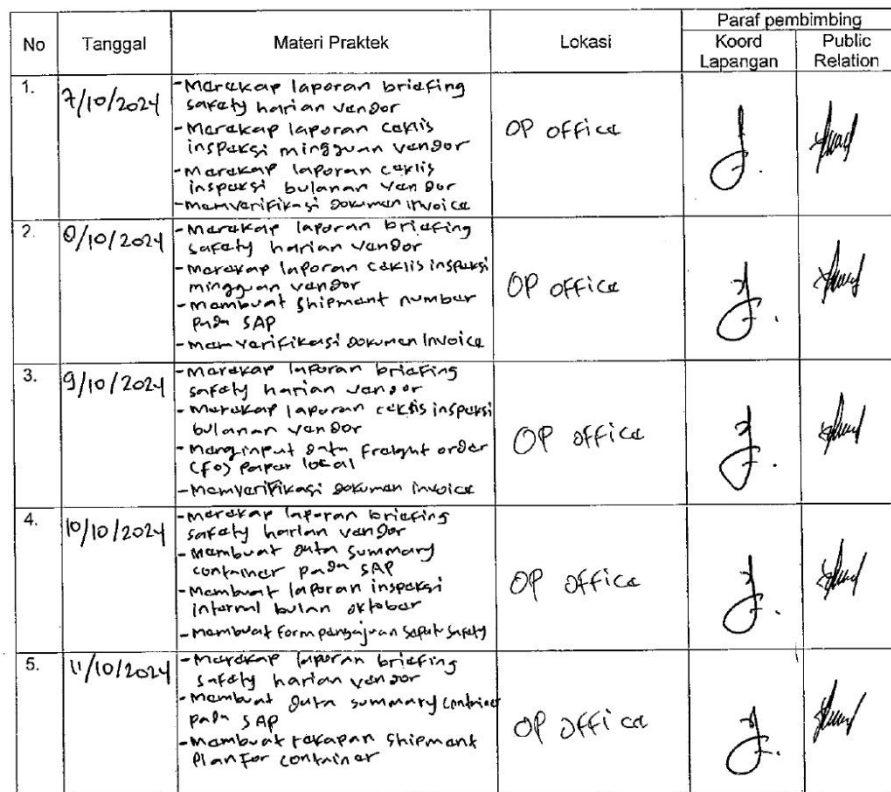 No Tanggal Materi Praktek Lokasi Paraf pembimbing
Koord Lapangan Public Relation
1. 7/10/2024 OP office
-Merekap laporan briefing
safety harian vendor
-Merekap laporan ceklis
inspeksi mingguan vendor
-Merekap laporan ceklis
inspeksi bulanan vendor
-Memverifikasi dokumen invoice
2. 8/10/2024 OP office
-Merekap laporan briefing
safety harian vendor
-Merekap laporan ceklis inspeksi
mingguan vendor
-Membuat shipment number
pada SAP
-Memverifikasi dokumen Invoice
3. 9/10/2024 OP office
-Merekap laporan briefing
safety harian vendor
-Merekap laporan ceklis inspeksi
bulanan vendor
-Menginput data freight order
(FO) paper local
-Memverifikasi dokumen invoice
4. 10/10/2024 OP office
-Merekap laporan briefing
safety harian vendor
-Membuat data summary
container pada SAP
-Membuat laporan inspeksi
internal bulan oktober
-Membuat form pengajuan sepatu safety
5. 11/10/2024 OP office
-Merekap laporan briefing
safety harian vendor
-Membuat data summary container
pada SAP
-Membuat rekapan shipment
plan for container